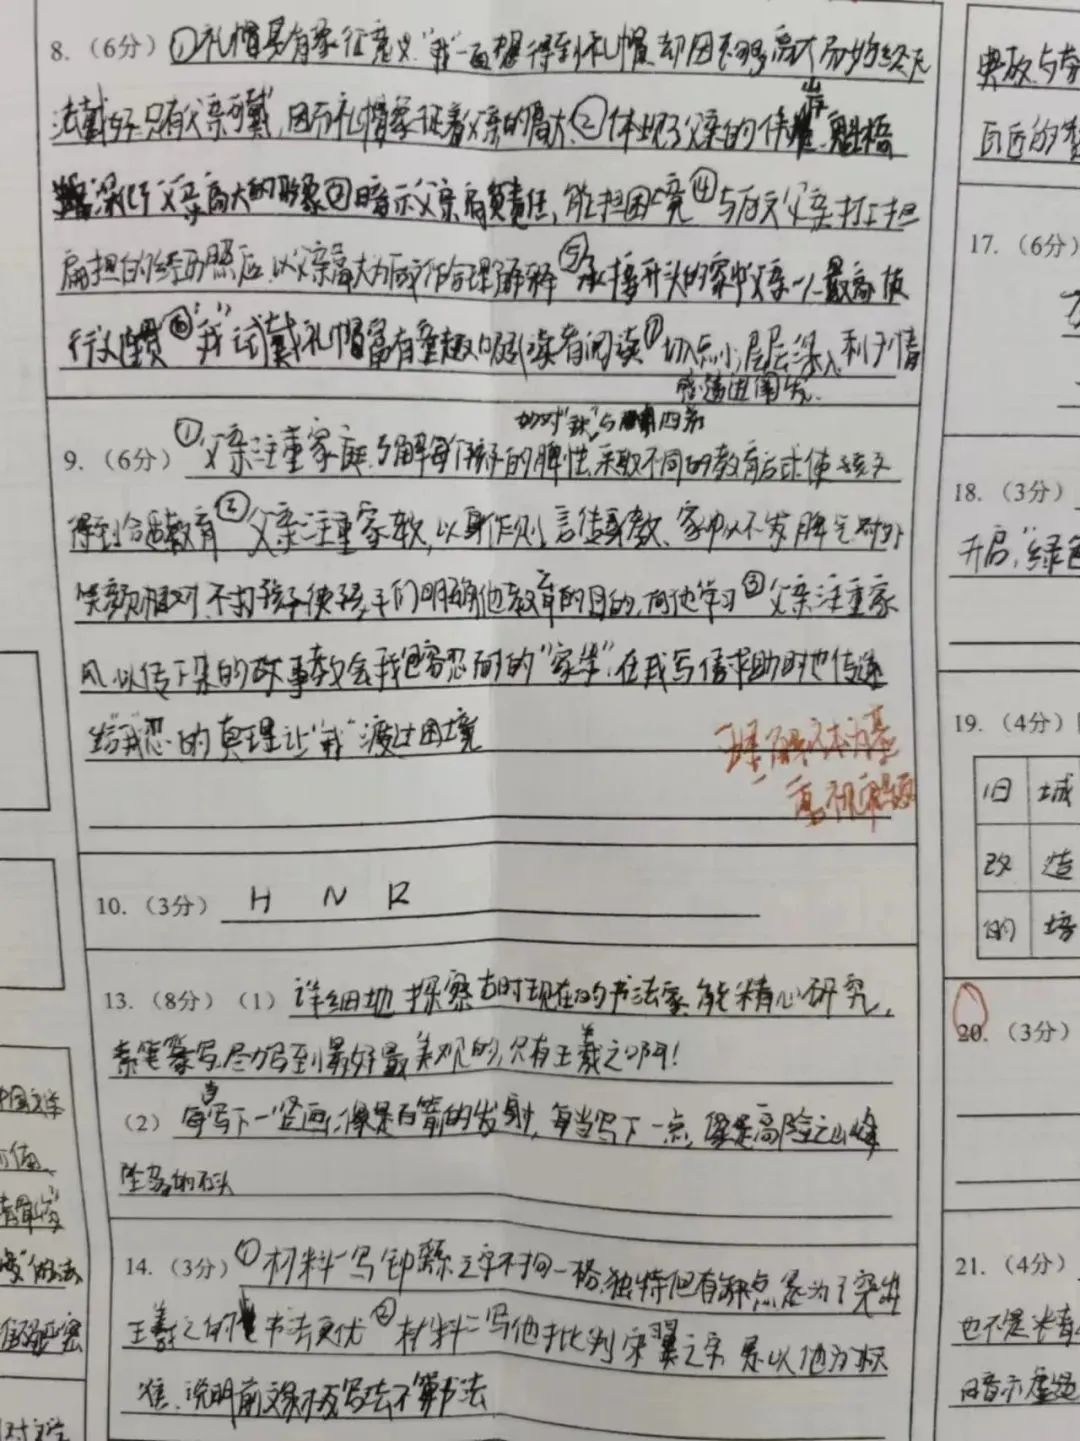 8.（6分）①礼帽具有象征意义."我"一直想得到礼帽,却因不够高大而始终无
法戴好.只有父亲可戴,因而礼帽象征着父亲的高大.②体现了父亲的伟岸、魁梧
深化了父亲高大的形象③暗示父亲肩负责任,能担困境④与后文父亲打上扁担
扁担的经历照应.以父亲高大为后文作合理解释⑤承接开头的家中父亲一人最高,使
行文连贯⑥"我"试戴礼帽富有童趣,吸引读者阅读⑦切点小,层层深入,利于情
感递进阐发.
如对"我"与四弟
9.（6分）①父亲注重家庭.了解每个孩子的脾性,采取不同的教育方式使孩子
得到合适教育②父亲注重家教,以身作则,言传身教、家中从不发脾气对外
笑颜相对,不打孩子使孩子们明确他教育的目的,向他学习③父亲注重家
风,以传下来的故事教会我包容忍耐的"家学",在我写信求助时也传递
给"我"忍的真理让"我"渡过困境
理解文本为基
重视审题
10.（3分） H N R
13.（8分）（1） 详细地探察古时现在的书法家,能精心研究,
篆写,尽力写到最好最美观的,只有王羲之啊!
（2） 每当写下一竖画,像是百箭的发射,每当写下一点,像是高险之山峰
坠落的石头
14.（3分）①材料一写钟繇之字不拘一格,独特但有缺点是为了突出
王羲之的书法更优②材料二写他批判宋翼之字是以他为标
准,说明前文刻板写法不算书法
典故与
百匠的
17.（6分）
18.（3分）
开启,"绿色
19.（4分）
旧 城
改 造
的 培
20.（3分）
21.（4分）
也不是
暗示虚